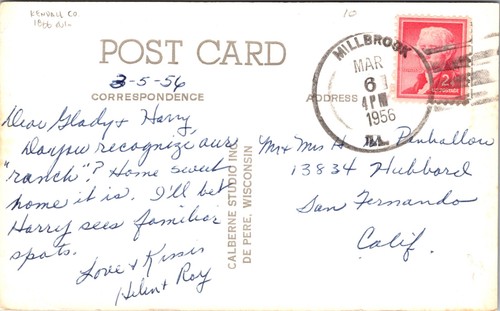 KENDALL CO.
10
POST CARD
3-5-56
CORRESPONDENCE
ADDRESS
MILLBROOK
MAR
6
4 PM
1956
ILL.
2¢
Dear Glady & Harry,
Do you recognize our
"ranch"? Home sweet
home it is. I'll bet
Harry sees familiar
spots.
Love & Kisses
Helen & Roy
CALBERNE STUDIO INC.
DE PERE, WISCONSIN
Mr & Mrs H Penhallow
13834 Hubbard
San Fernando
Calif.